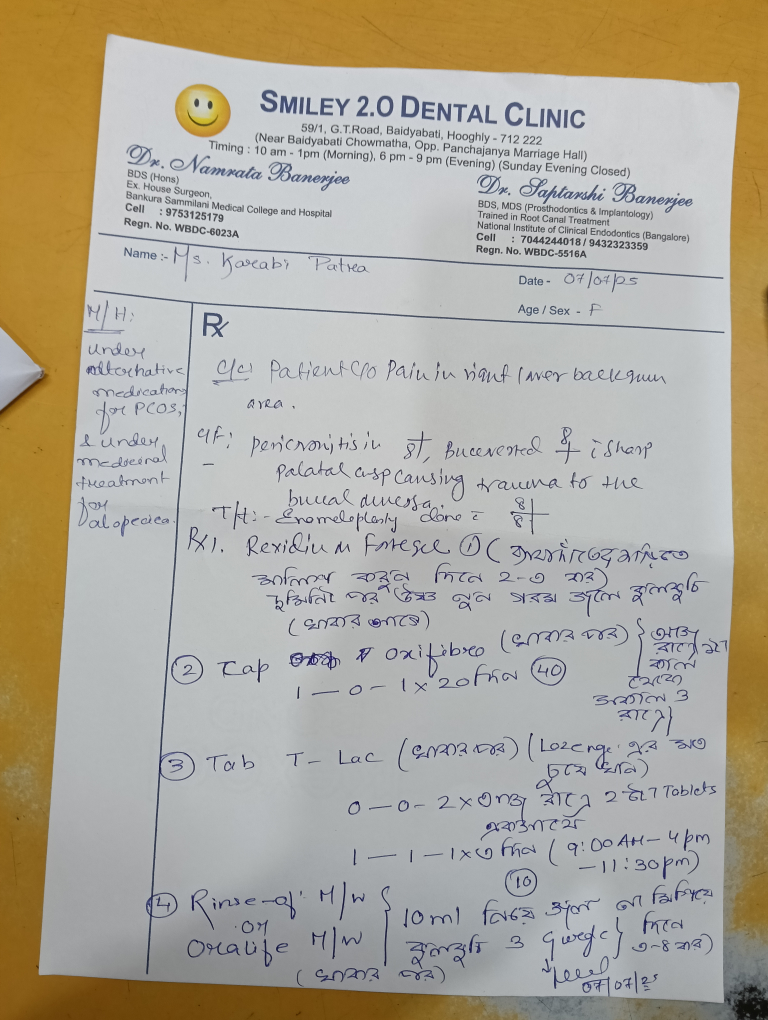 SMILEY 2.0 DENTAL CLINIC
59/1, G.T.Road, Baidyabati, Hooghly - 712 222
(Near Baidyabati Chowmatha, Opp. Panchajanya Marriage Hall)
Timing : 10 am - 1pm (Morning), 6 pm - 9 pm (Evening) (Sunday Evening Closed)
Dr. Namrata Banerjee
BDS (Hons)
Ex. House Surgeon,
Bankura Sammilani Medical College and Hospital
Cell : 9753125179
Regn. No. WBDC-6023A
Dr. Saptarshi Banerjee
BDS, MDS (Prosthodontics & Implantology)
Trained in Root Canal Treatment
National Institute of Clinical Endodontics (Bangalore)
Cell : 7044244018 / 9432323359
Regn. No. WBDC-5516A
Name :- Ms. Karabi Patra
Date - 07/07/25
Age / Sex - F
M/H:
under
alternative
medications
for PCOS,
& under
medicinal
treatment
for
alopecia.
Rx
C/C: Patient C/O Pain in right lower back gum
area.
Pericronitis in 8, 8 i sharp
palatal cusp causing trauma to the
buccal
T/t:- Enameloplasty done 8
8
Rx1. Forte gel ① (
করুন দিনে ২-৩ বার)
নুন গরম জলে কুলকুচি
(খাবার আগে)
② Cap Oxifibro (খাবার পর) { আজ
রাত্রে ১টা
কাল
থেকে
সকাল ও
রাত্রে }
1 — 0 — 1 x 20 দিন 40
③ Tab T-Lac (খাবার পর) (Lozenge এর মত
চুষে খাবে)
0 — 0 — 2 x আজ রাত্রে 2 টা Tablets
একসাথে
1 — 1 — 1 x ৩ দিন (9:00 AM - 4 pm
- 11:30 pm)
10
④ Rinse-of M/W
or
Oralife M/W
(খাবার পর)
{ 10 ml নিয়ে জল না মিশিয়ে
কুলকুচি ও gargle } দিনে
৩-৪ বার)
07/07/25